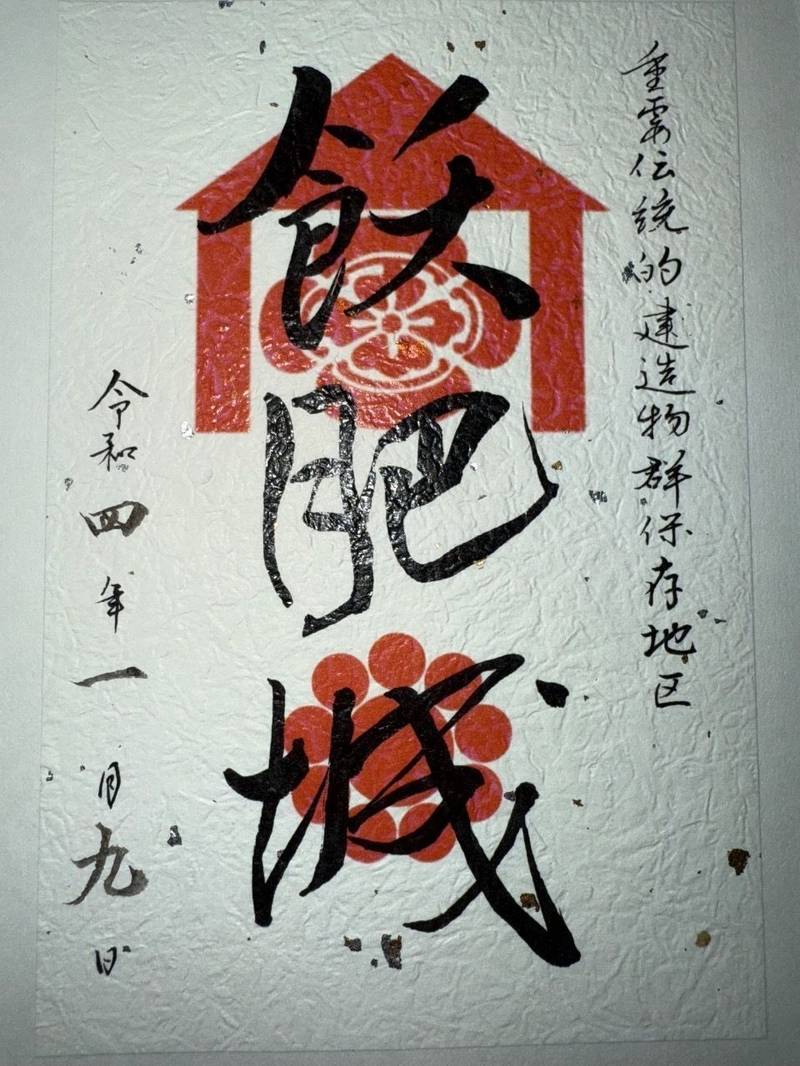 重要伝統的建造物群保存地区
飫肥城
令和四年一月九日